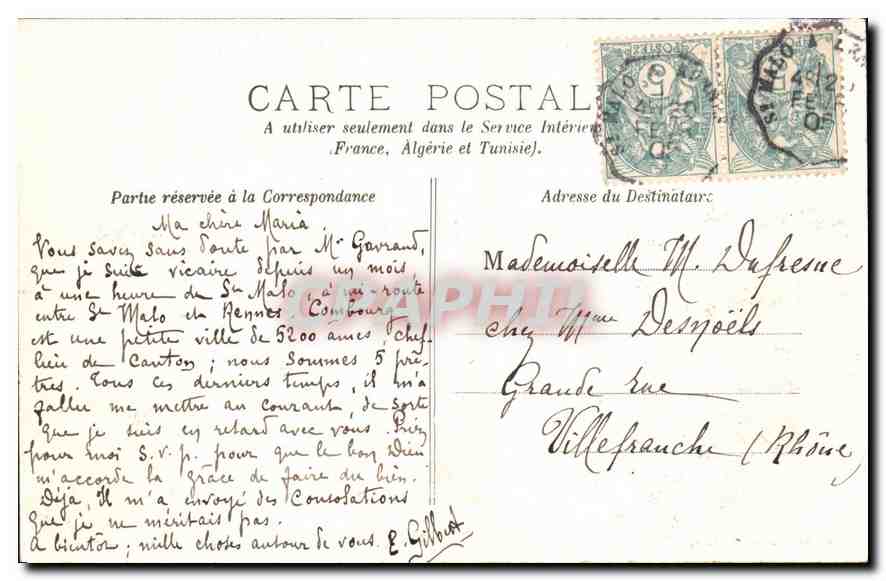 CARTE POSTAL
A utiliser seulement dans le Service Intérieu
(France, Algérie et Tunisie).
Partie réservée à la Correspondance
Ma chère Maria,
Vous savez sans doute par Mr Gavraud,
que je suis vicaire depuis un mois
à une heure de St Malo, à mi-route
entre St Malo et Rennes. Combourg
est une petite ville de 5200 ames, chef-
lieu de Canton ; nous sommes 5 prê-
tres. Tous ces derniers temps, il m'a
fallu me mettre au courant, de sorte
que je suis en retard avec vous. Priez
pour moi S.v.p. pour que le bon Dieu
m'accorde la grâce de faire du bien.
Déjà, Il m'a envoyé des Consolations
que je ne méritais pas.
A bientôt ; mille choses autour de vous. E. Gilbert
Adresse du Destinataire
Mademoiselle M. Dufresne
chez Mme Desnoëls
Grande rue
Villefranche (Rhône)
POSTES
POSTES
St MALO A RENNES
FEVR
05
St MALO A REN
FEV
05
CPAPHIL